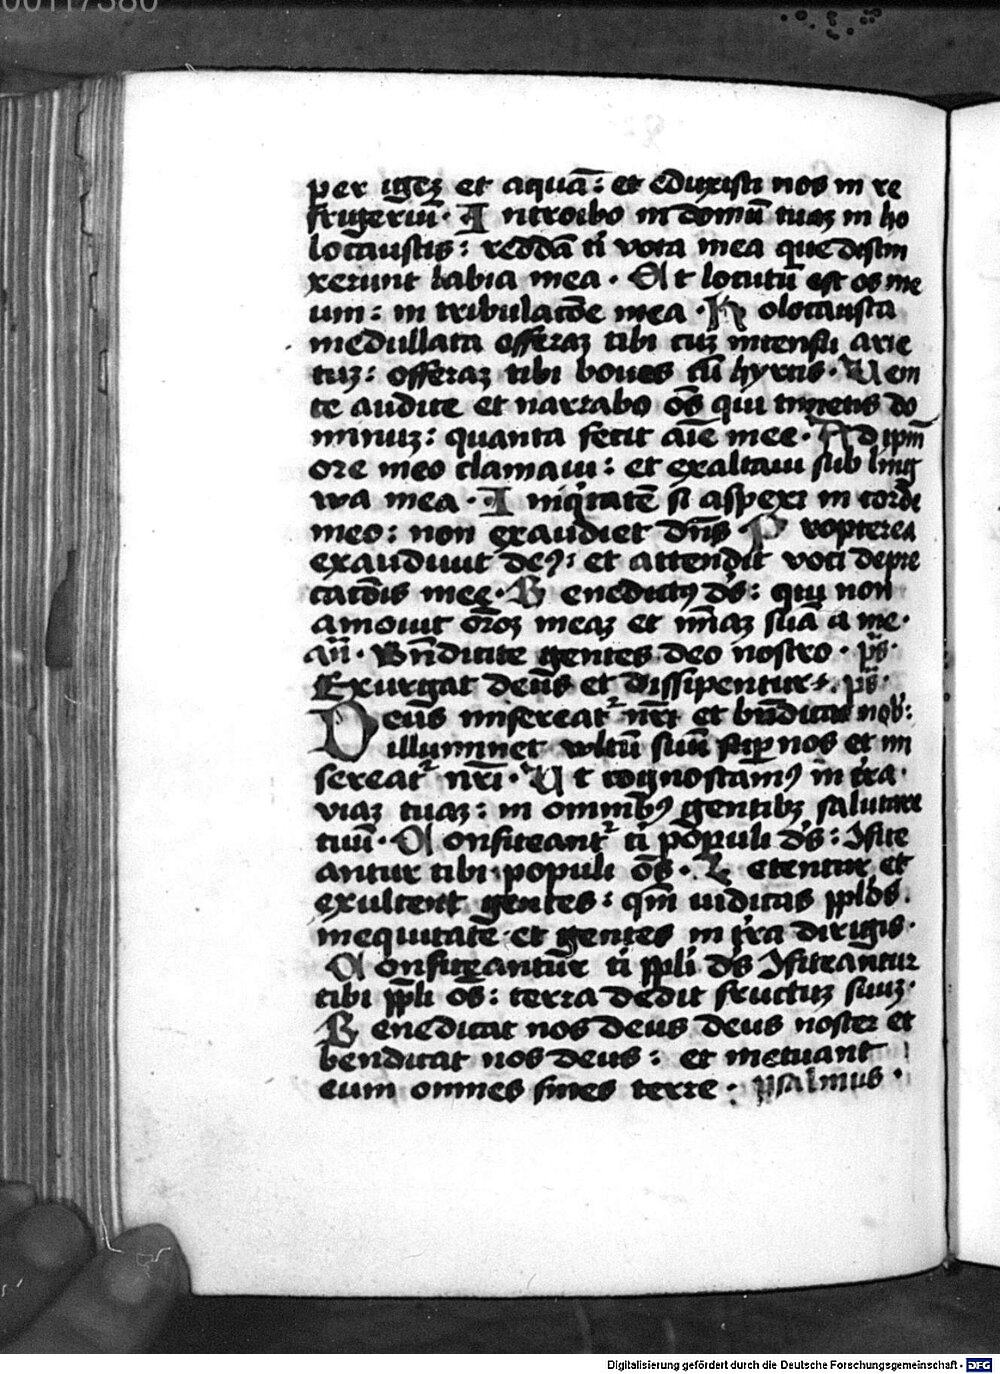 00117380
per igēz et aquā: et eduxisti nos in re
frigeriū. Introibo in domū tuaz in ho
locaustis: reddā ti vota mea que distin
xerunt labia mea. Et locutū est os me
um: in tribulatōe mea. Holocausta
medullata offeraz tibi cuz intensu arie
tuz: offeraz tibi boues cū hyrcis. Ueni
te audite et narrabo ōs qui timetis do
minuz: quanta fecit aīe mee. Ad ipm̄
ore meo clamaui: et exaltaui sub ling
wa mea. Iniqͥtatē si aspexi in corde
meo: non exaudiet dn̄s Propterea
exaudiuit deꝰ: et attendit voci depre
catōis mee. Benedictꝰ ds̄: qui non
amouit orōz meaz et mīaz suā a me.
añ. Bn̄dicite gentes deo nostro. ps̄.
Exurgat deus et dissipentur. ps̄.
Deus misereatᷣ nr̄i et bn̄dicat nob̄:
illuminet wltū suū suꝑ nos et mi
sereatᷣ nr̄i. Ut cognoscamꝰ in tr̄a
viaz tuaz: in omnibꝰ gentibꝫ salutare
tuū. Confiteantᷣ ti populi ds̄: ꝯfite
antur tibi populi ōs. Letentur et
exultent gentes: qm̄ iudicas pplōs
in equitate et gentes in tr̄a dirigis.
Confiteantur ti ppl̄i ds̄ ꝯfiteantur
tibi ppl̄i ōs: terra dedit fructuz suuz.
Benedicat nos deus deus noster et
bendicat nos deus: et metuant
eum omnes fines terre. psalmus.
Digitalisierung gefördert durch die Deutsche Forschungsgemeinschaft - DFG